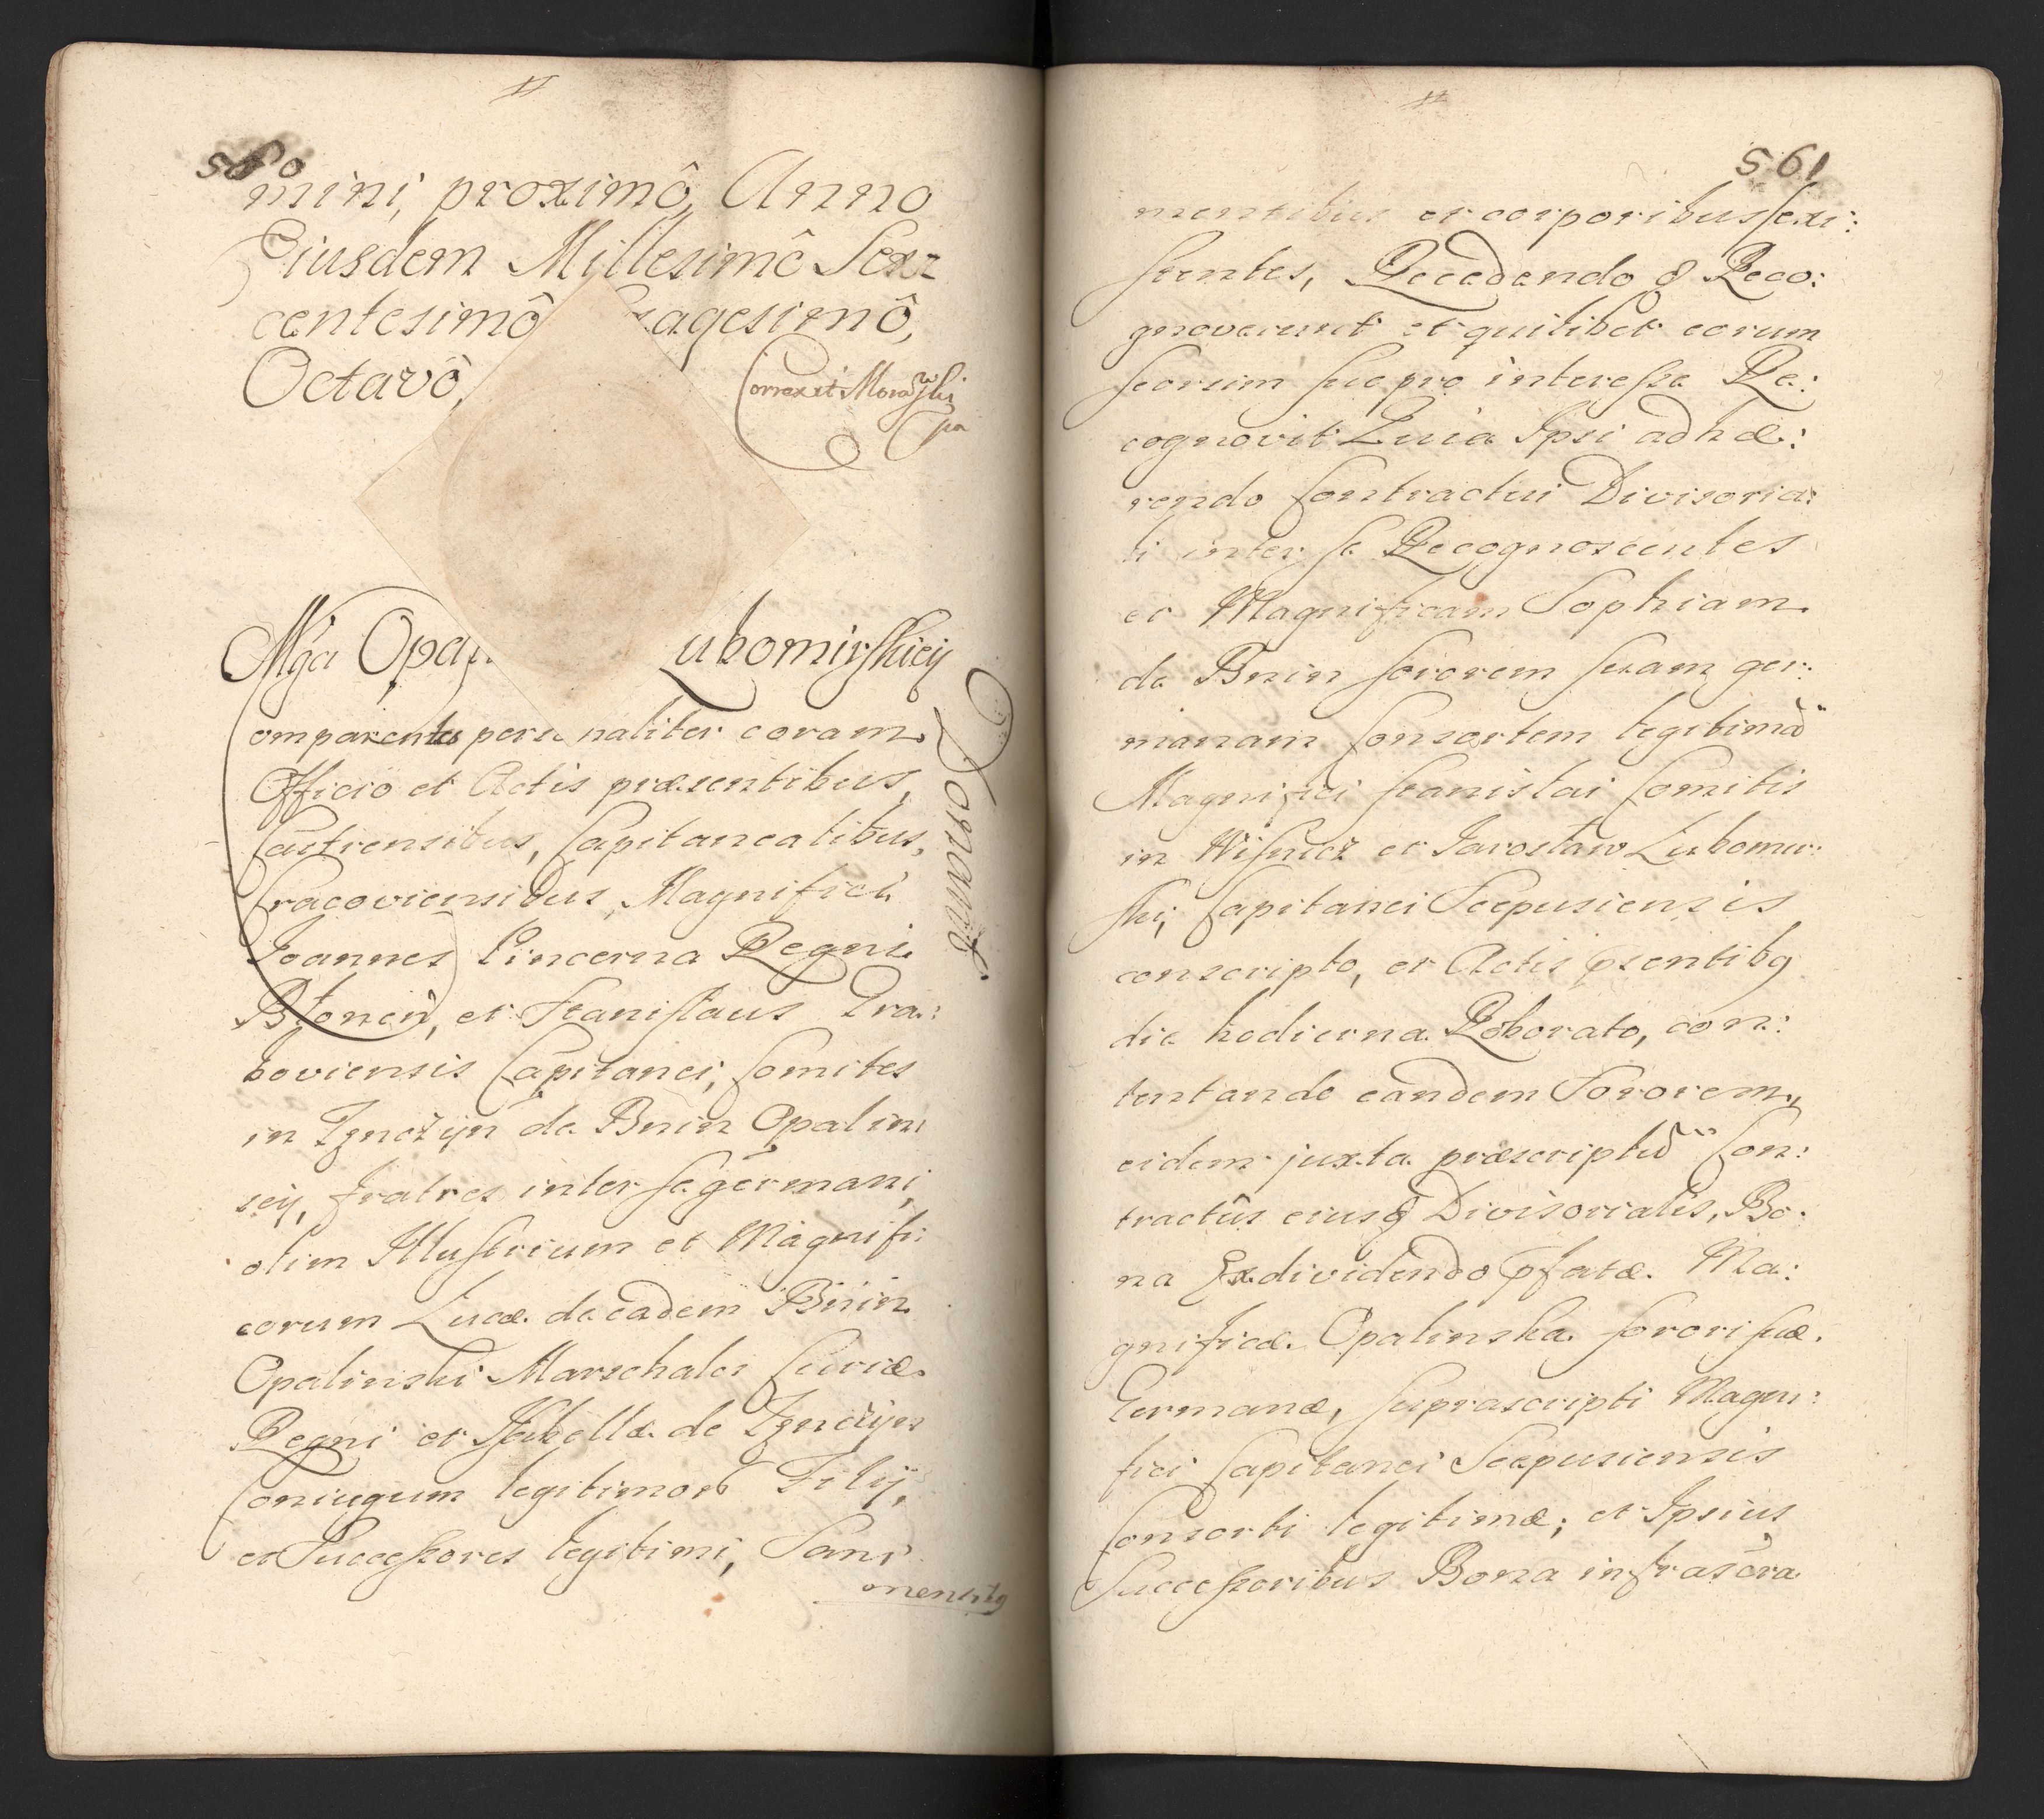 580
mini, proximô, Anno
Eiusdem Millesimô Sex=
centesimô agesimô,
Octavô,
Correxit Morawski
mpa
Mgci Opal ubomirskieij
Comparentes personaliter coram
Officio et Actis præsentibus,
Castrensibus, Capitanealibus,
Cracoviensibus, Magnifici
Joannes Pincerna Regni
Błonen, et Stanislaus Gra:
boviensis Capitanei, Comites
in Tęnczÿn de Bnin Opalin:
scij, fratres inter se germani,
olim Illustrium et Magnifi:
corum Lucæ de eadem Bnin
Opalinski Marschalci Curiæ
Regni et Isabellæ de Tęnczÿn
Coniugum legitimor Filij,
et Successores legitimi, Sani
omentibg
561
mentibus et corporibus exi:
stentes, Recedendo & Reco:
gnoverunt et quilibet eorum
seorum suo pro interesse Re:
cognovit Quia Ipsi adhæ:
rendo Contractui Divisoria:
li inter se Recognoscentes
et Magnificam Sophiam
de Bnin sororem suam ger:
manam Consortem legitimã
Magnifici Stanislai Comitis
in Wisnicz et Jarosław Lubomir:
ski, Capitanei Scepusiensis
conscripto, et Actis psentibg
die hodierna Roborato, con:
tentando eandem Sororem,
eidem juxta præscriptũ Con:
tractûs eiusd Divisorialis, Bo:
na Exdividendo pfatæ Ma:
gnificæ Opalinska sorori suæ
Germanæ, suprascripti Magni:
fici Capitanei Scepusiensis
Consorti legitimæ, et Ipsius
Successoribus Bona infrascra